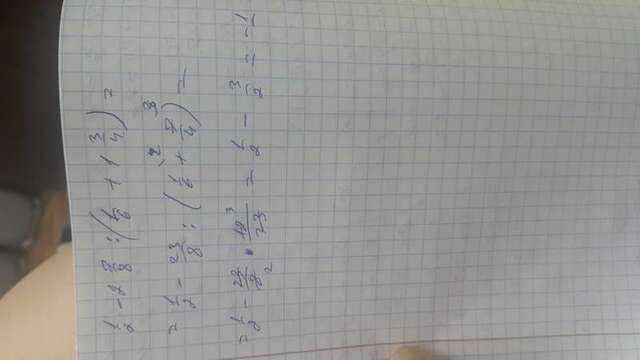 1/2 - 2 7/8 : (1/6 + 1 3/4) =
= 1/2 - 23/8 : (1/6 + 7/4) =
= 1/2 - 23/8 · 12/23 = 1/2 - 3/2 = -1